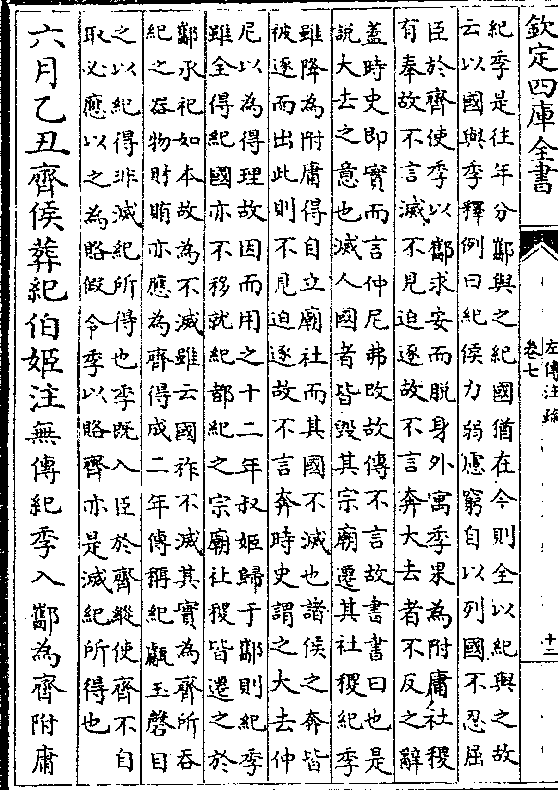 欽定四庫全書
左傳注疏
卷七
十二
紀季是往年分酅與之紀國猶在今則全以紀與之故
云以國與季釋例曰紀侯力弱慮窮自以列國不忍屈
臣於齊使季以酅求安而脱身外寓季果為附庸社稷
有奉故不言滅不見迫逐故不言奔大去者不反之辭
蓋時史即實而言仲尼弗改故傳不言故書書曰也是
說大去之意也滅人國者皆毁其宗廟遷其社稷紀季
雖降為附庸得自立廟社而其國不滅也諸侯之奔皆
被逐而出此則不見迫逐故不言奔時史謂之大去仲
尼以為得理故因而用之十二年叔姬歸于酅則紀季
雖全得紀國亦不移就紀都紀之宗廟社稷皆遷之於
酅承祀如本故為不滅雖云國祚不滅其實為齊所吞
紀之器物財賄亦應為齊得成二年傳稱紀甗玉磬目
之以紀得非滅紀所得也季既入臣於齊縱使齊不自
取必應以之為賂假令季以賂齊亦是滅紀所得也
六月乙丑齊侯葬紀伯姬注無傳紀季入酅為齊附庸